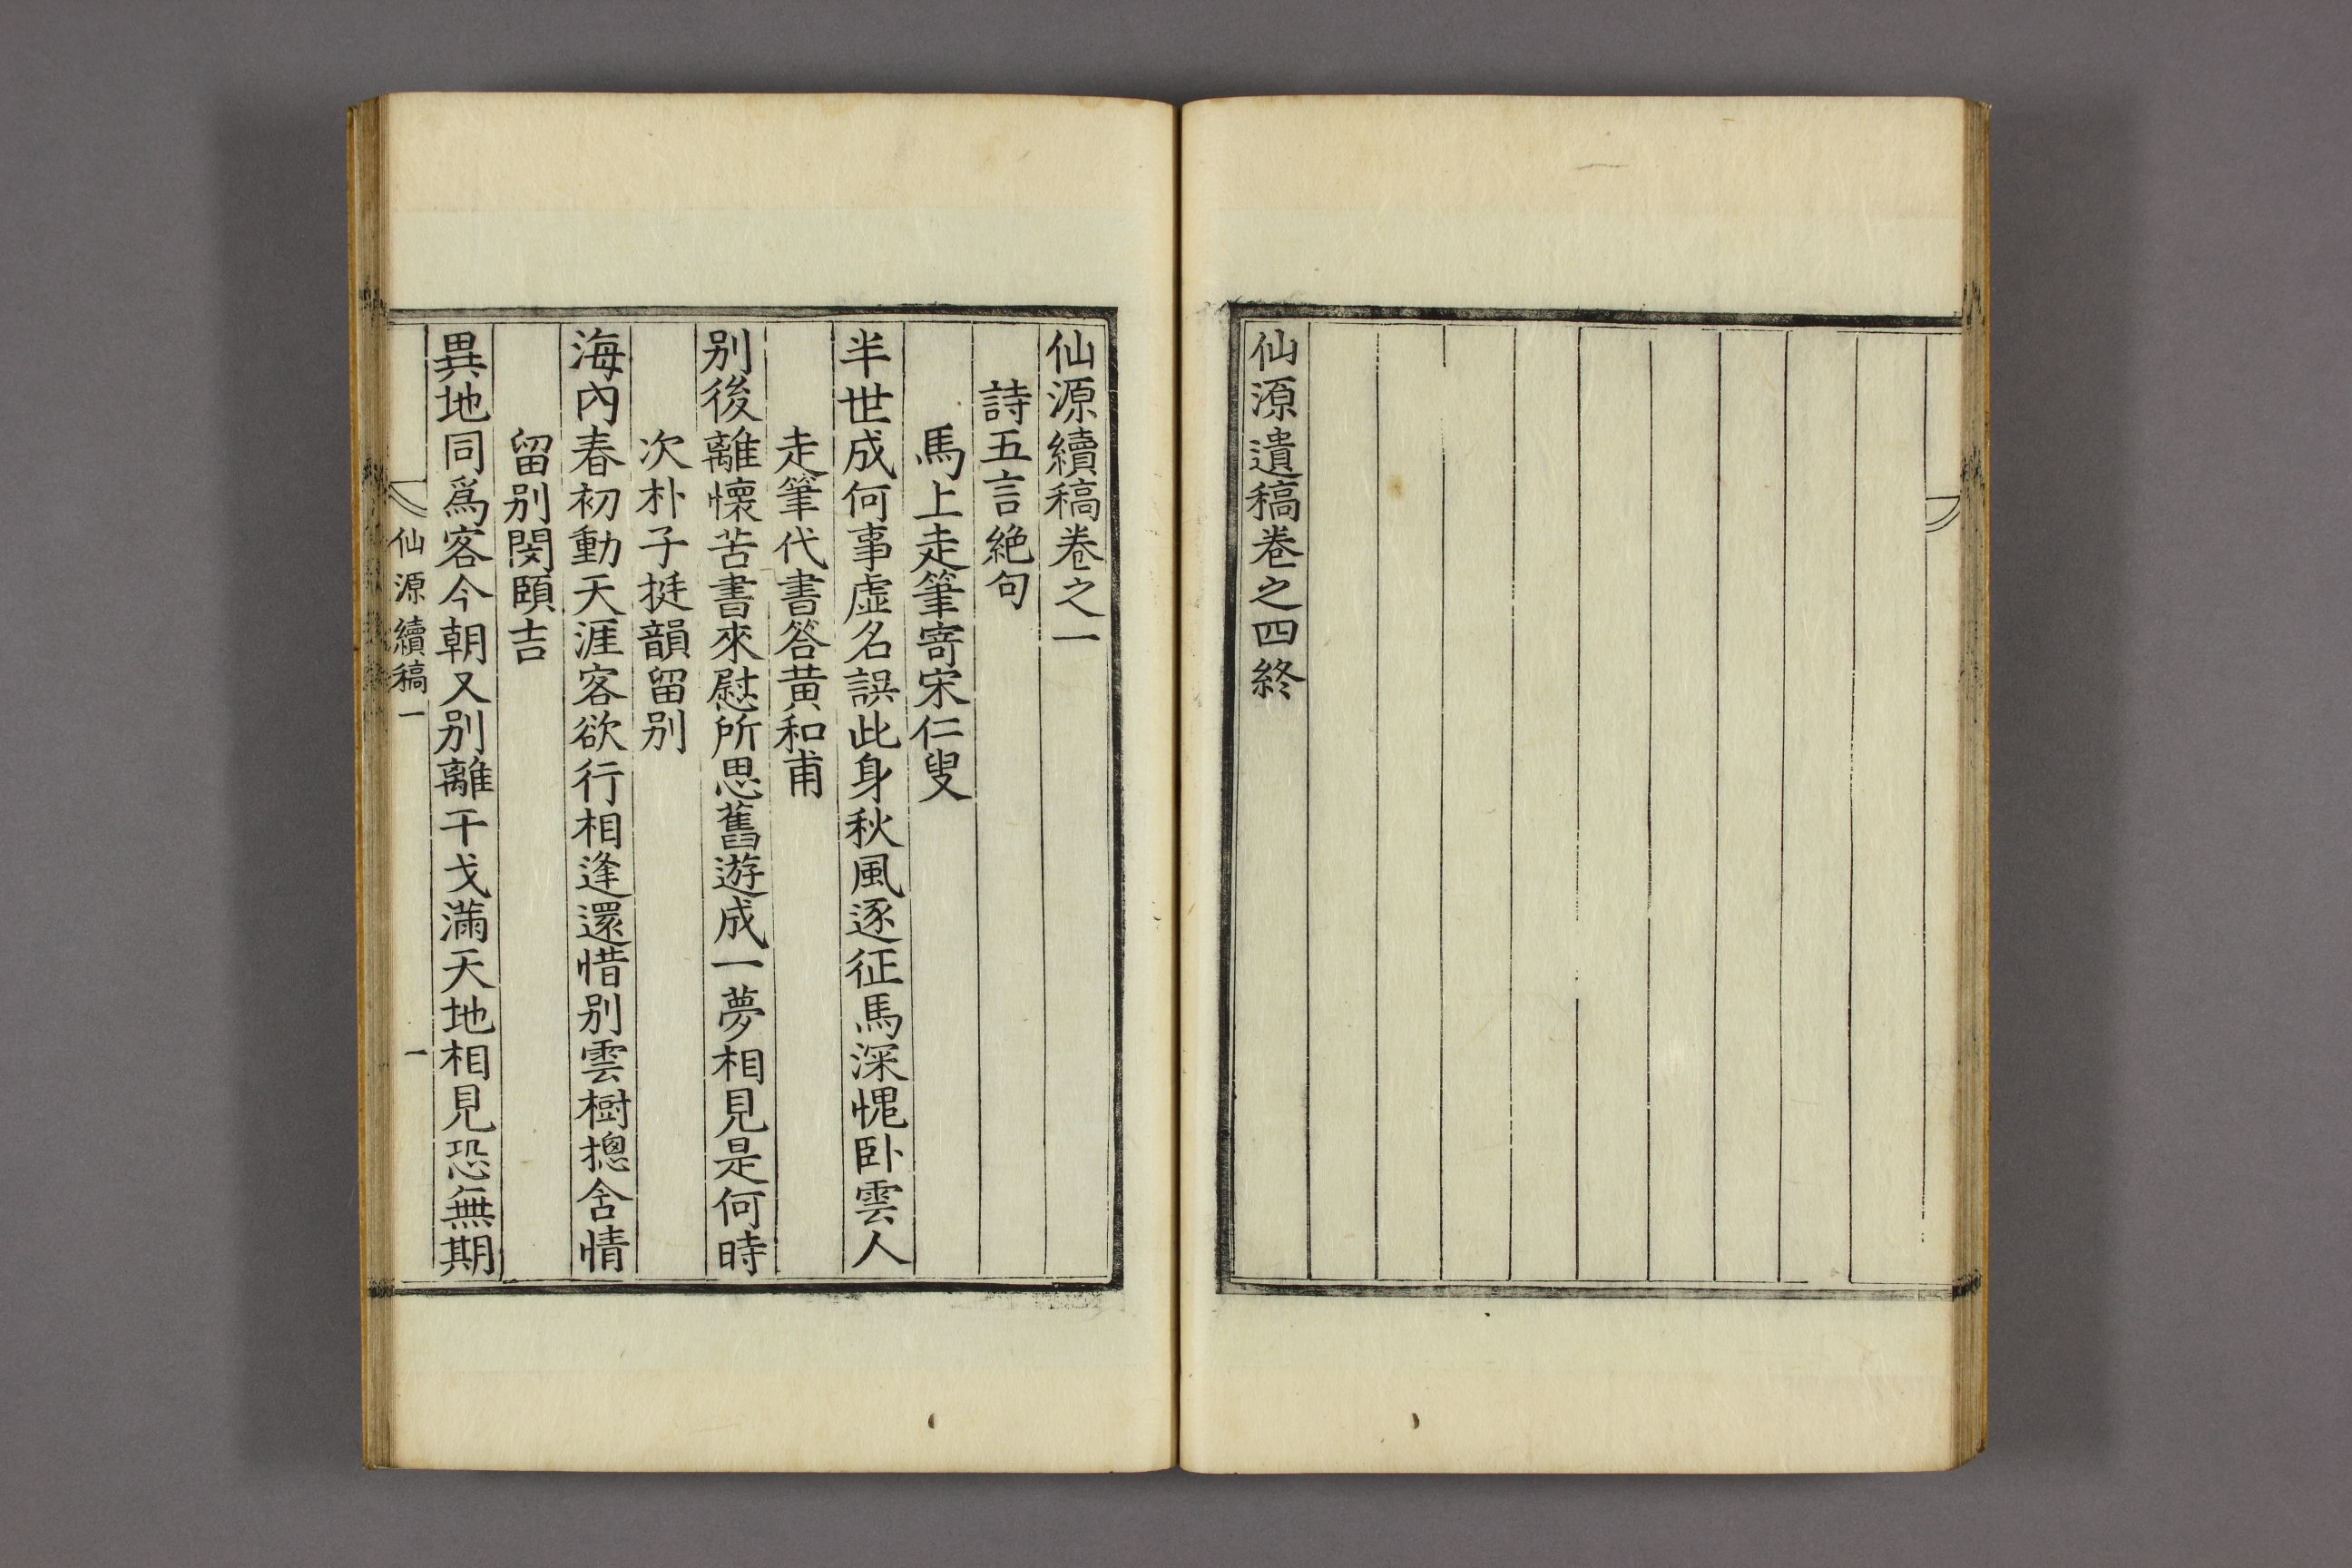 仙源遺稿卷之四終
仙源續稿卷之一
詩五言絶句
馬上走筆寄宋仁叟
半世成何事虛名誤此身秋風逐征馬深愧卧雲人
走筆代書答黃和甫
别後離懷苦書來慰所思舊遊成一夢相見是何時
次朴子挺韻留别
海內春初動天涯客欲行相逢還惜别雲樹摠含情
留别閔頤吉
異地同爲客今朝又别離干戈滿天地相見恐無期
仙源續稿一 一